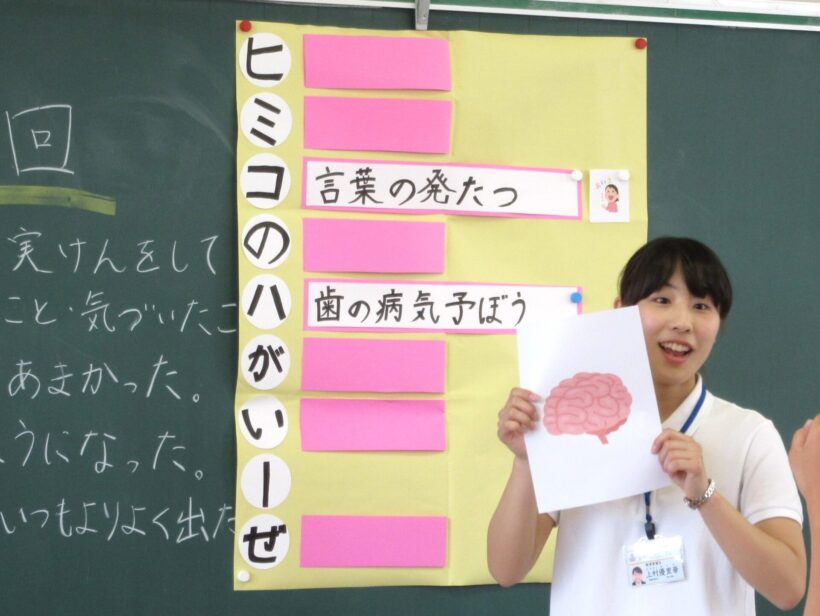 回
実けんをして
こと・気づいたこ
あまかった。
うになった。
いつもよりよく出た
ヒ
ミ
コ 言葉の発たつ
の
ハ 歯の病気予ぼう
が
い
ー
ぜ